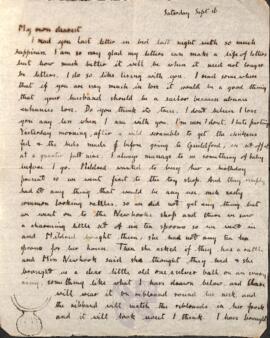 Saturday Sept 16
My own dearest
I read you last letter in bed last night with so much
happiness. I am so very glad my letters can make a life of letters
but how much better it will be when it need not longer
be letters. I do so like living with you. I read somewhere
that if you are very much in love it would be a good thing
that your husband should be a sailor because absence
enhances love. Do you think it true. I don't think I love
you any less when I am with you. I'm sure I don't. I hate parting
Yesterday morning, after a wild scramble to get the chickens
fed & the beds made before going to Guildford, we set off at
at a quarter past nine. I always manage to so something of baby
before I go. Mildred wanted to buy her a birthday
present so we went first to the toy shop. And they
had not any thing that would be any use, such
common looking rattles, so we did not get any thing but
we went on to the Newhooks shop and there we saw
a charming little set of six tea spoons so we went in
and Mildred bought them, she had not any tea
spoons for her house. Then she asked if they has a rattle,
and Miss Newhook said she thought they had & she
brought us a dear little old one, silver ball on an ivory
ring, something like what I have drawn below, and
will wear it on ribband round his neck and
the ribband will match the ribbands in his frock
and it will look sweet I think. I have brought